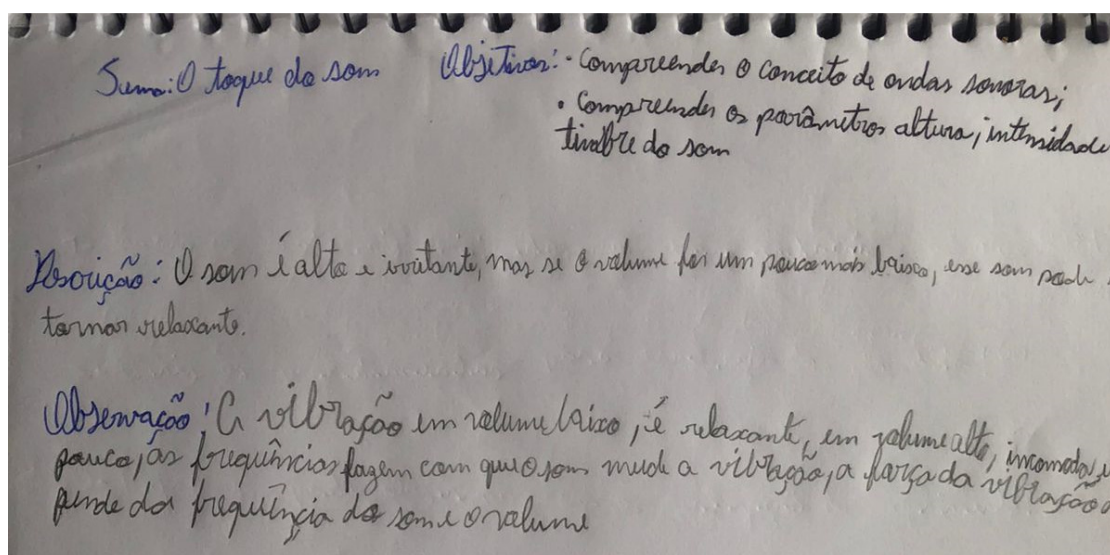 Tema: O toque do som
Objetivos: • Compreender o conceito de ondas sonoras;
• Compreender os parâmetros altura, intensidade
timbre do som
Descrição: O som é alto e irritante, mas se o volume for um pouco mais baixo, esse som pode
tornar relaxante.
Observação: A vibração em volume baixo, é relaxante, em volume alto, incomoda
pouco, as frequências fazem com que o som mude a vibração, a força da vibração
pende da frequência do som e o volume